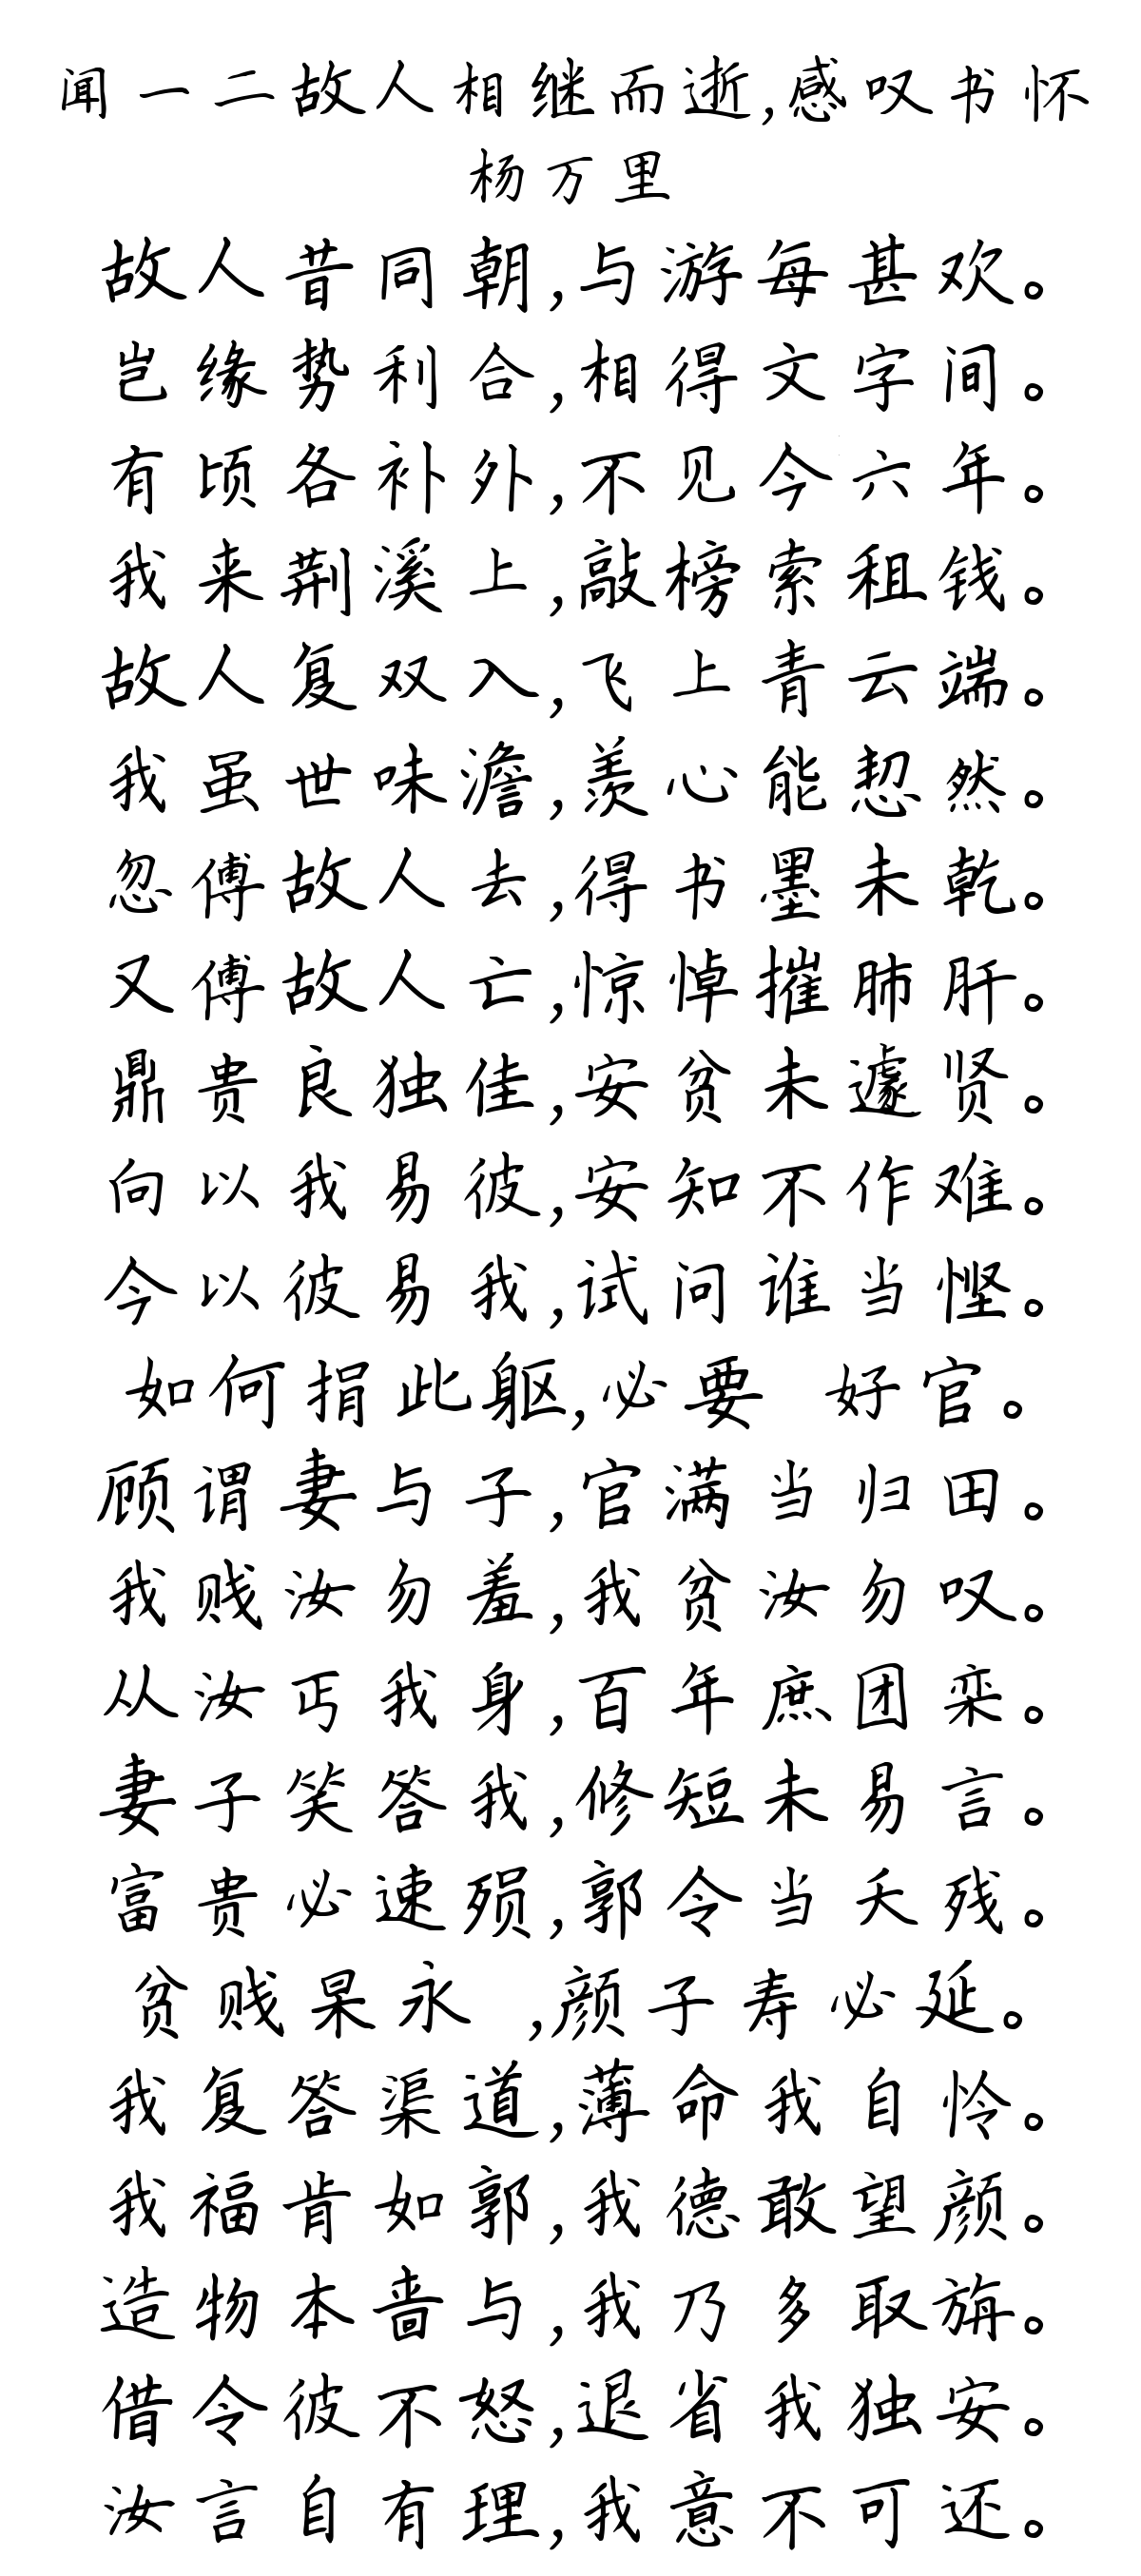 闻一二故人相继而逝,感叹书怀
杨万里
故人昔同朝,与游每甚欢。
岂缘势利合,相得文字间。
有顷各补外,不见今六年。
我来荆溪上,敲榜索租钱。
故人复双入,飞上青云端。
我虽世味澹,羡心能恝然。
忽傅故人去,得书墨未乾。
又傅故人亡,惊悼摧肺肝。
鼎贵良独佳,安贫未遽贤。
向以我易彼,安知不作难。
今以彼易我,试问谁当悭。
如何捐此躯,必要 好官。
顾谓妻与子,官满当归田。
我贱汝勿羞,我贫汝勿叹。
从汝丐我身,百年庶团栾。
妻子笑答我,修短未易言。
富贵必速殒,郭令当夭残。
贫贱杲永 ,颜子寿必延。
我复答渠道,薄命我自怜。
我福肯如郭,我德敢望颜。
造物本啬与,我乃多取旃。
借令彼不怒,退省我独安。
汝言自有理,我意不可还。